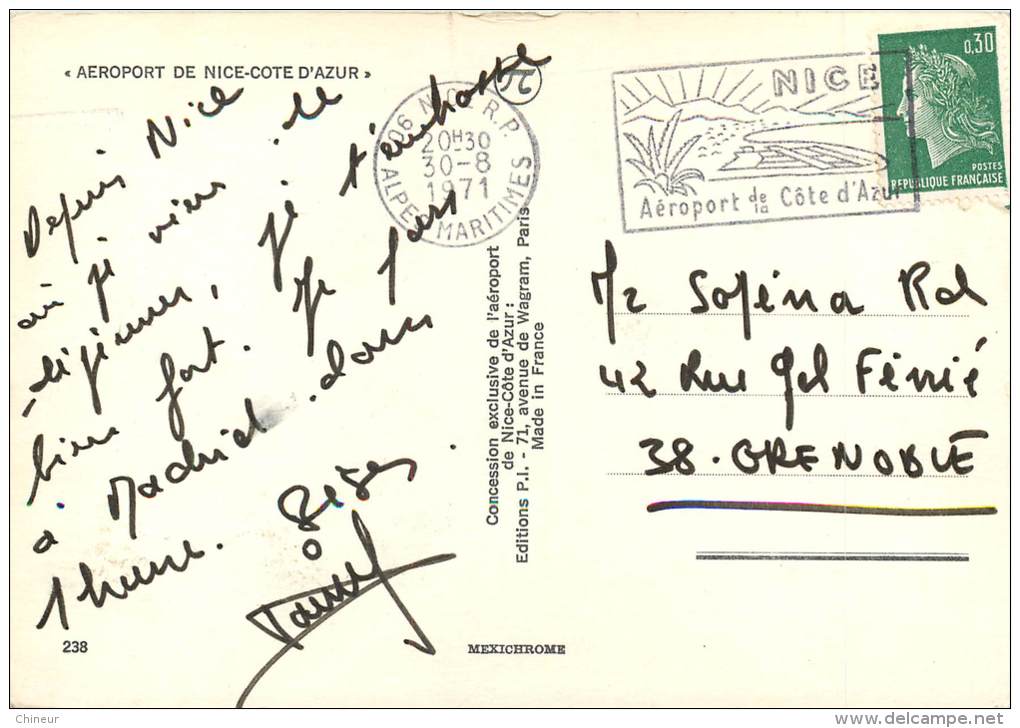 « AEROPORT DE NICE-COTE D'AZUR »
Depuis Nice
où je viens de
déjeuner, je t'embrasse
bien fort. Je pars
à Madrid dans
1 heure.
238
06 NICE R.P.
20H30
30-8
1971
ALPES MARITIMES
NICE
Aéroport de la Côte d'Azur
0,30
POSTES
REPUBLIQUE FRANÇAISE
Concession exclusive de l'aéroport
de Nice-Côte d'Azur :
Editions P.I. - 71, avenue de Wagram, Paris
Made in France
42 Rue Gal Férrié
38 - GRENOBLE
MEXICHROME
Chineur
delcampe.net